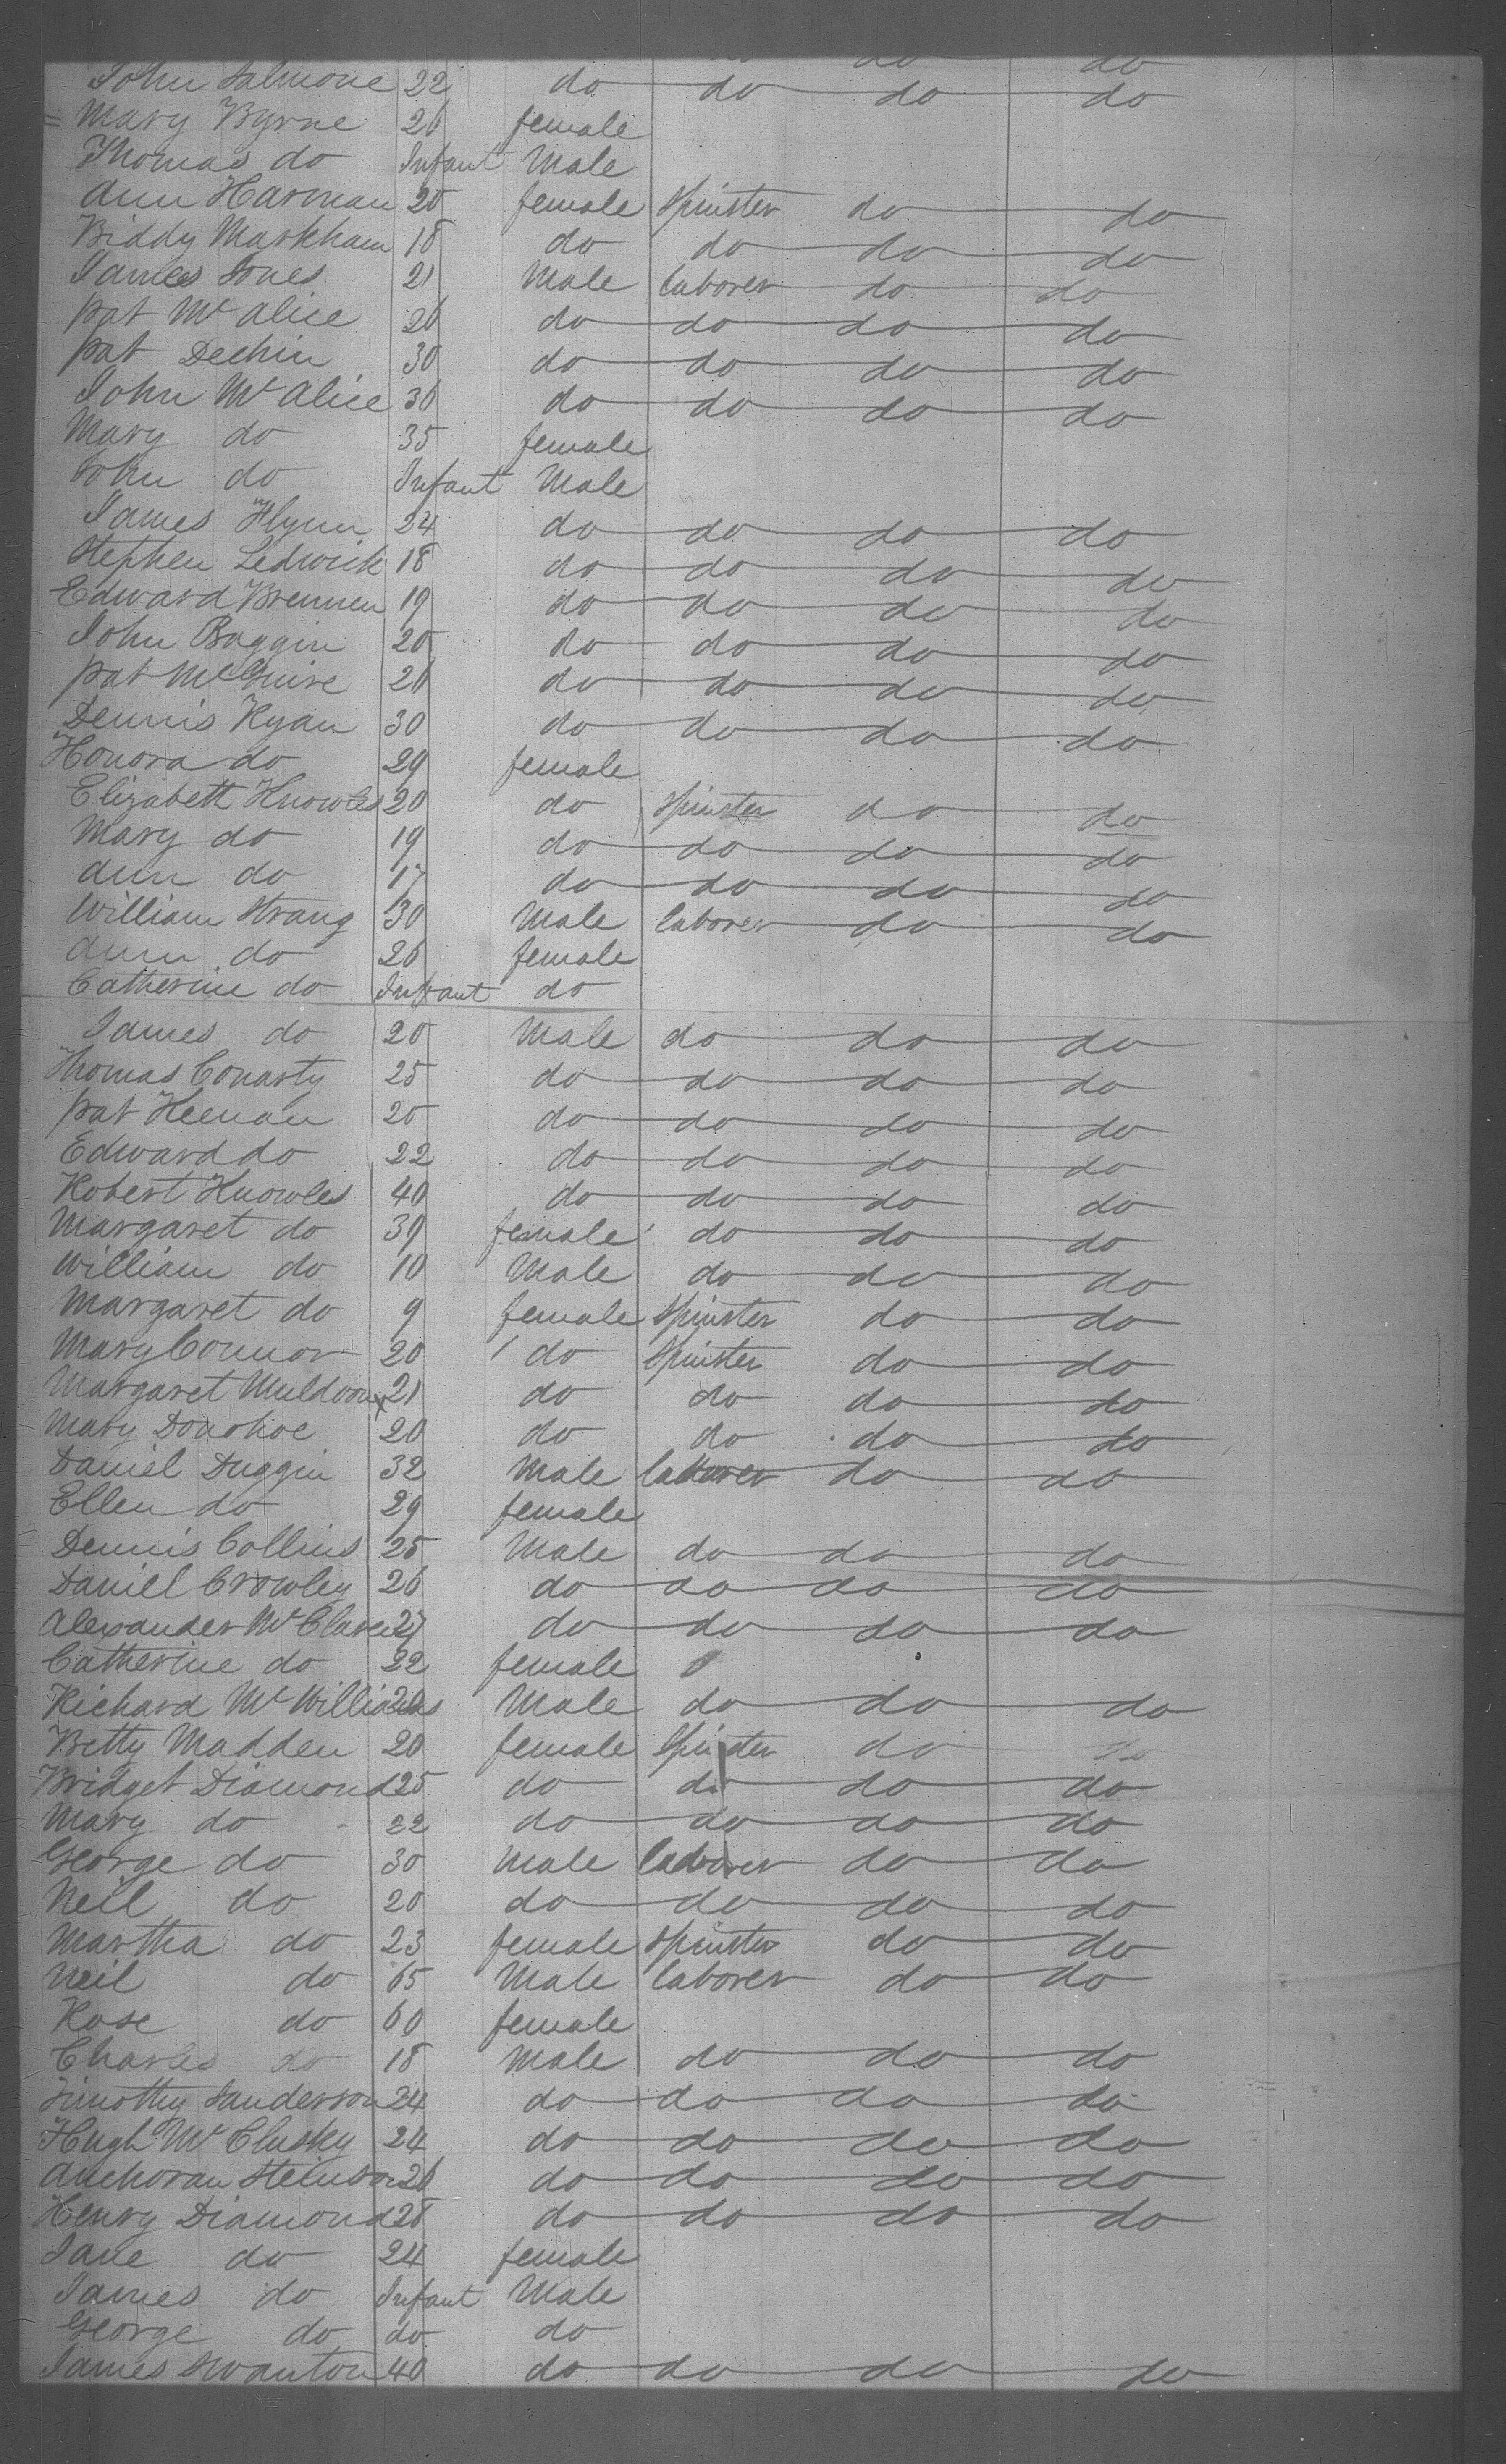 do do
John Salmone 22 do do do do
Mary Byrne 26 female
Thomas do Infant Male
Ann Harman 20 female Spinster do do
Biddy Markham 18 do do do do
James Jones 21 Male laborer do do
pat Mc Alice 26 do do do do
pat Dechin 30 do do do do
John Mc Alice 36 do do do do
Mary do 35 female
John do Infant Male
James Flynn 24 do do do do
Stephen Ledwick 18 do do do do
Edward Brennen 19 do do do do
John Baggin 20 do do do do
pat McGuire 26 do do do do
Dennis Ryan 30 do do do do
Honora do 29 female
Elizabeth Knowles 20 do Spinster do do
Mary do 19 do do do do
Ann do 17 do do do do
William Strang 30 Male laborer do do
Ann do 26 female
Catherine do Infant do
James do 20 Male do do do
Thomas Conarty 25 do do do do
pat Keenan 20 do do do do
Edward do 22 do do do do
Robert Knowles 40 do do do do
Margaret do 39 female do do do
William do 10 Male do do do
Margaret do 9 female Spinster do do
Mary Connor 20 do Spinster do do
Margaret Muldoon 21 do do do do
Mary Donohoe 20 do do do do
Daniel Duggin 32 Male laborer do do
Ellen do 29 female
Dennis Collins 25 Male do do do
Daniel Crowley 26 do do do do
Alexander Mc Claren 27 do do do do
Catherine do 22 female
Richard Mc Williams 20 Male do do do
Betty Madden 20 female Spinster do do
Bridget Diamond 25 do do do do
Mary do 22 do do do do
George do 30 Male laborer do do
Neil do 20 do do do do
Martha do 23 female Spinster do do
Neil do 65 Male laborer do do
Rose do 60 female
Charles do 18 Male do do do
Timothy Sanderson 24 do do do do
Hugh Mc Clusky 24 do do do do
26 do do do do
Henry Diamond 28 do do do do
Jane do 24 female
James do Infant Male
George do do do
James Swanton 40 do do do do